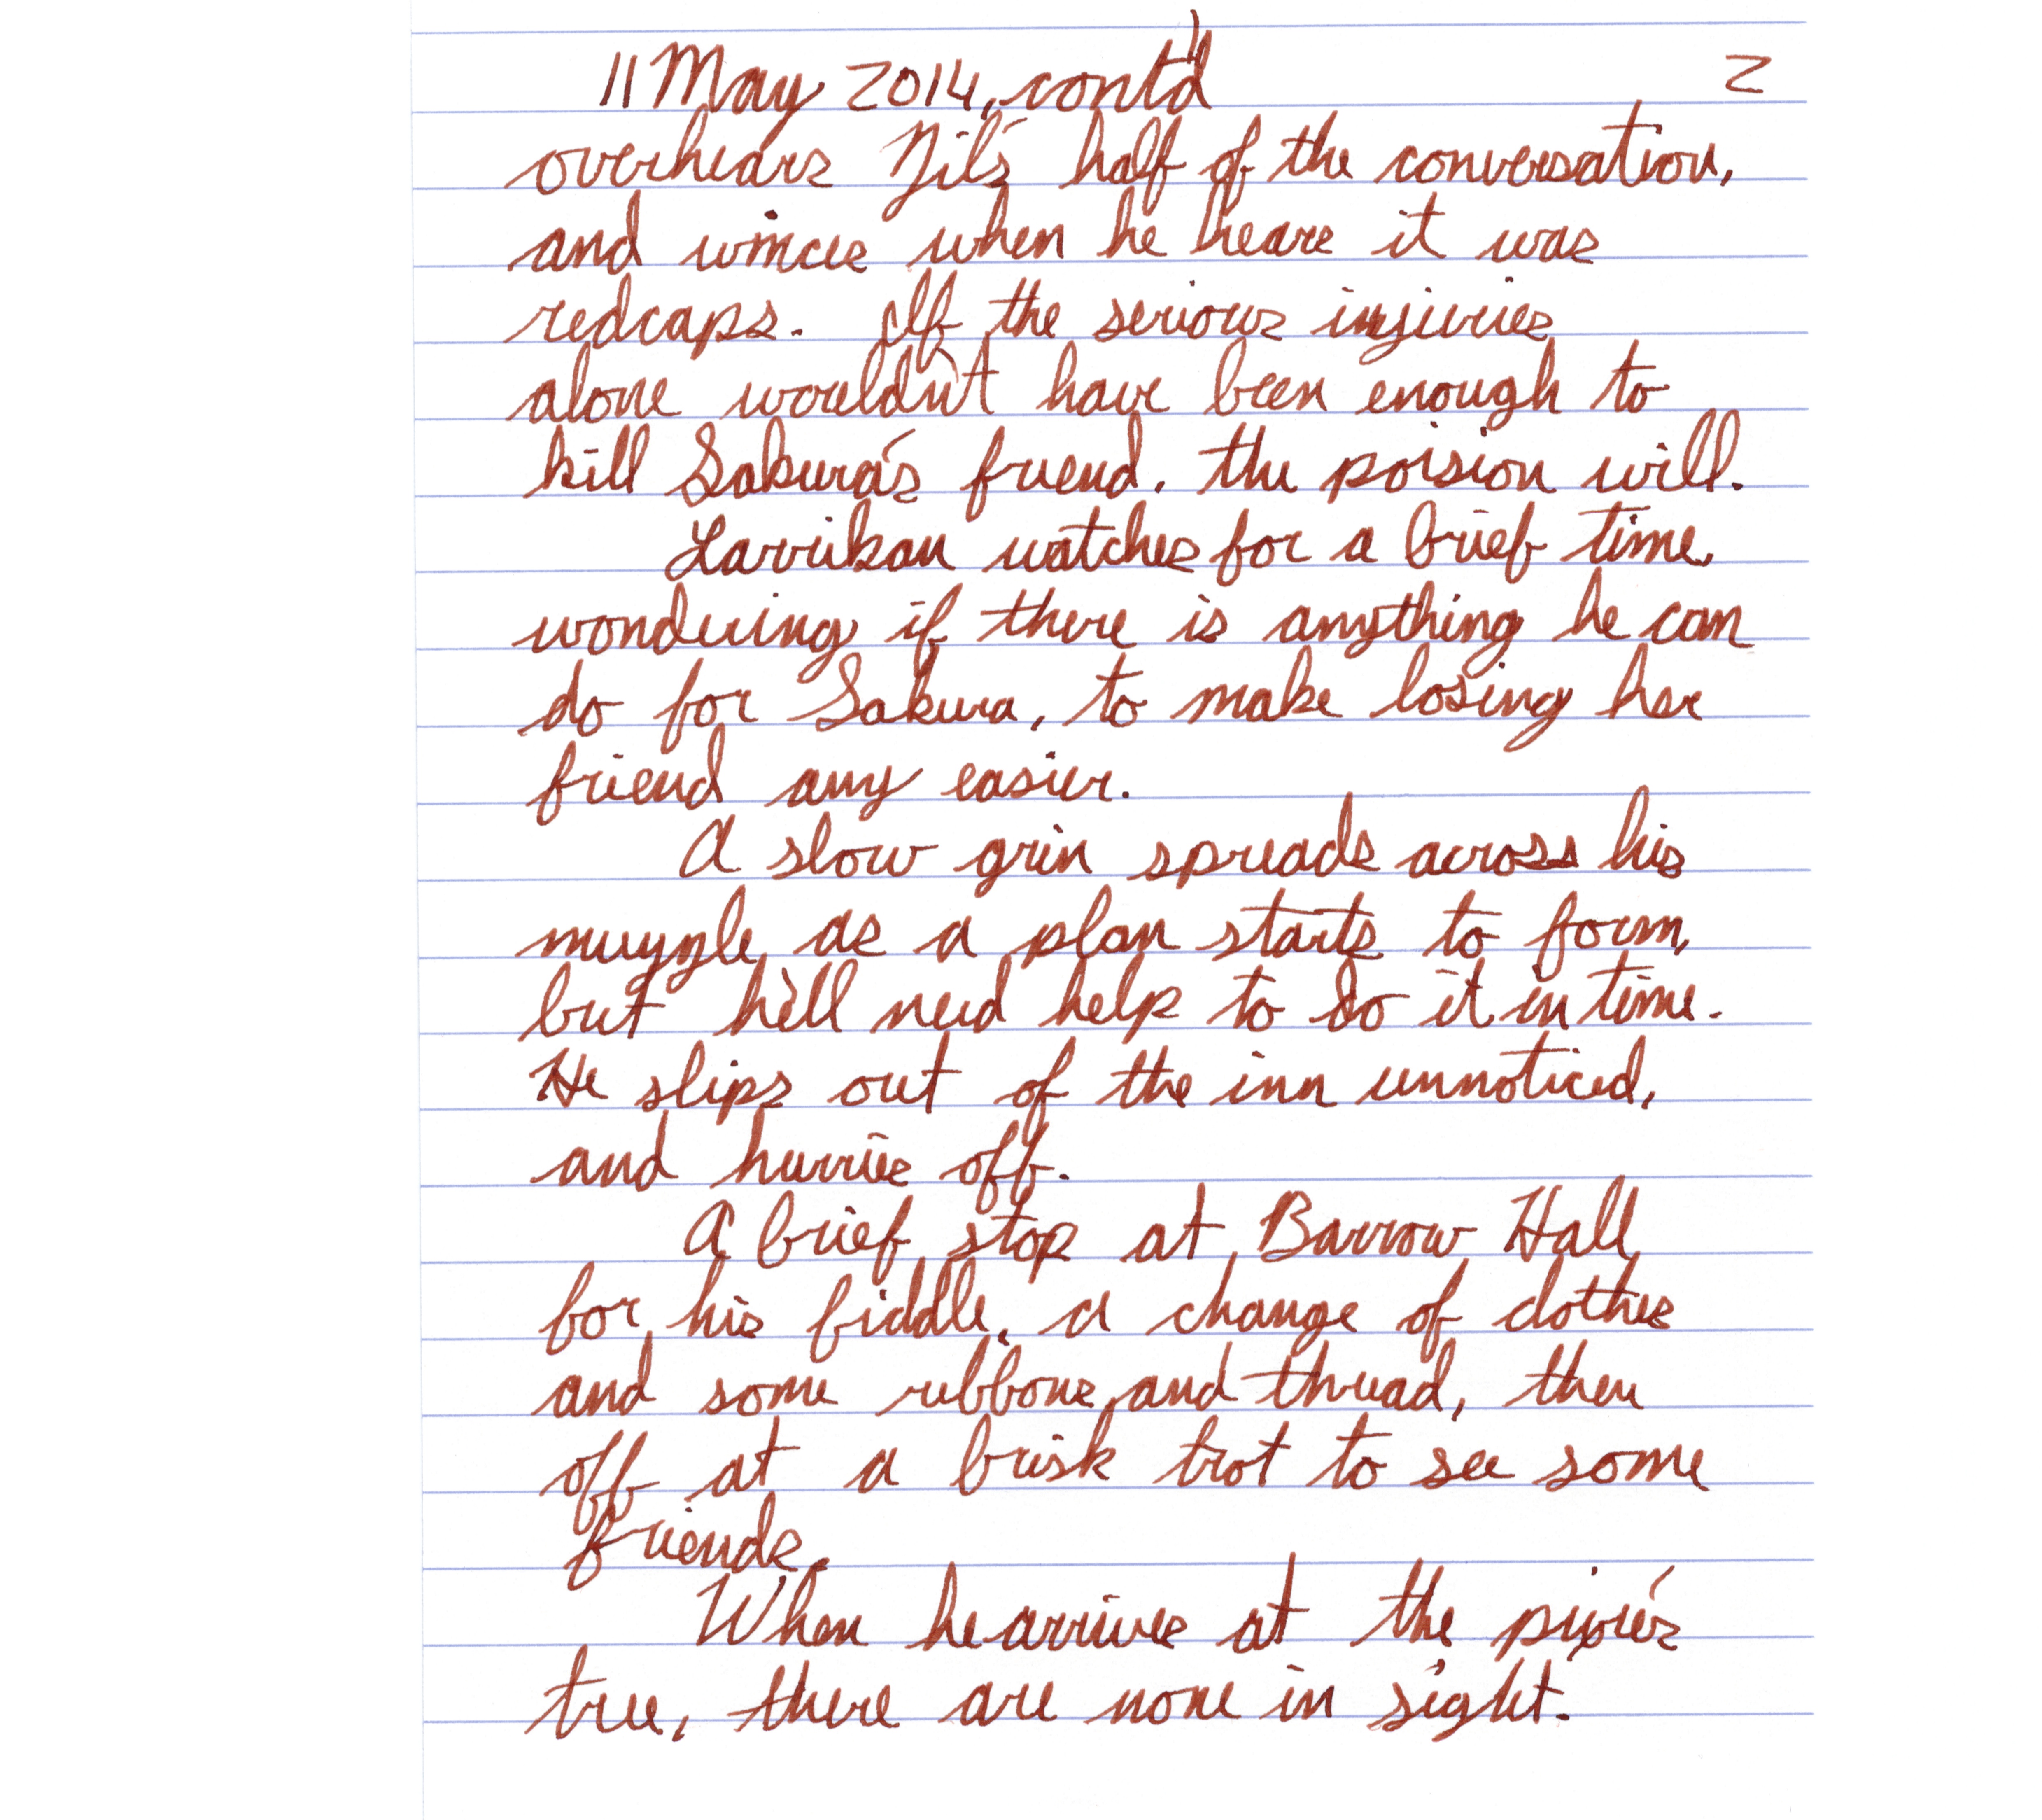 11 May 2014, cont'd 2
overhears Jil's half of the conversation,
and winces when he hears it was
redcaps. If the serious injuries
alone wouldn't have been enough to
kill Sakura's friend, the poision will.
Larrikan watches for a brief time,
wondering if there is anything he can
do for Sakura, to make losing her
friend any easier.
A slow grin spreads across his
muzzle as a plan starts to form,
but he'll need help to do it in time.
He slips out of the inn unnoticed,
and hurries off.
A brief stop at Barrow Hall
for his fiddle, a change of clothes
and some ribbons and thread, then
off at a brisk trot to see some
friends.
When he arrives at the pixie's
tree, there are none in sight.